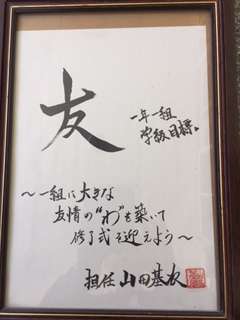 友
一年一組
学級目標。
〜一組に大きな
友情の“わ”を築いて
修了式を迎えよう〜
担任 山田基次